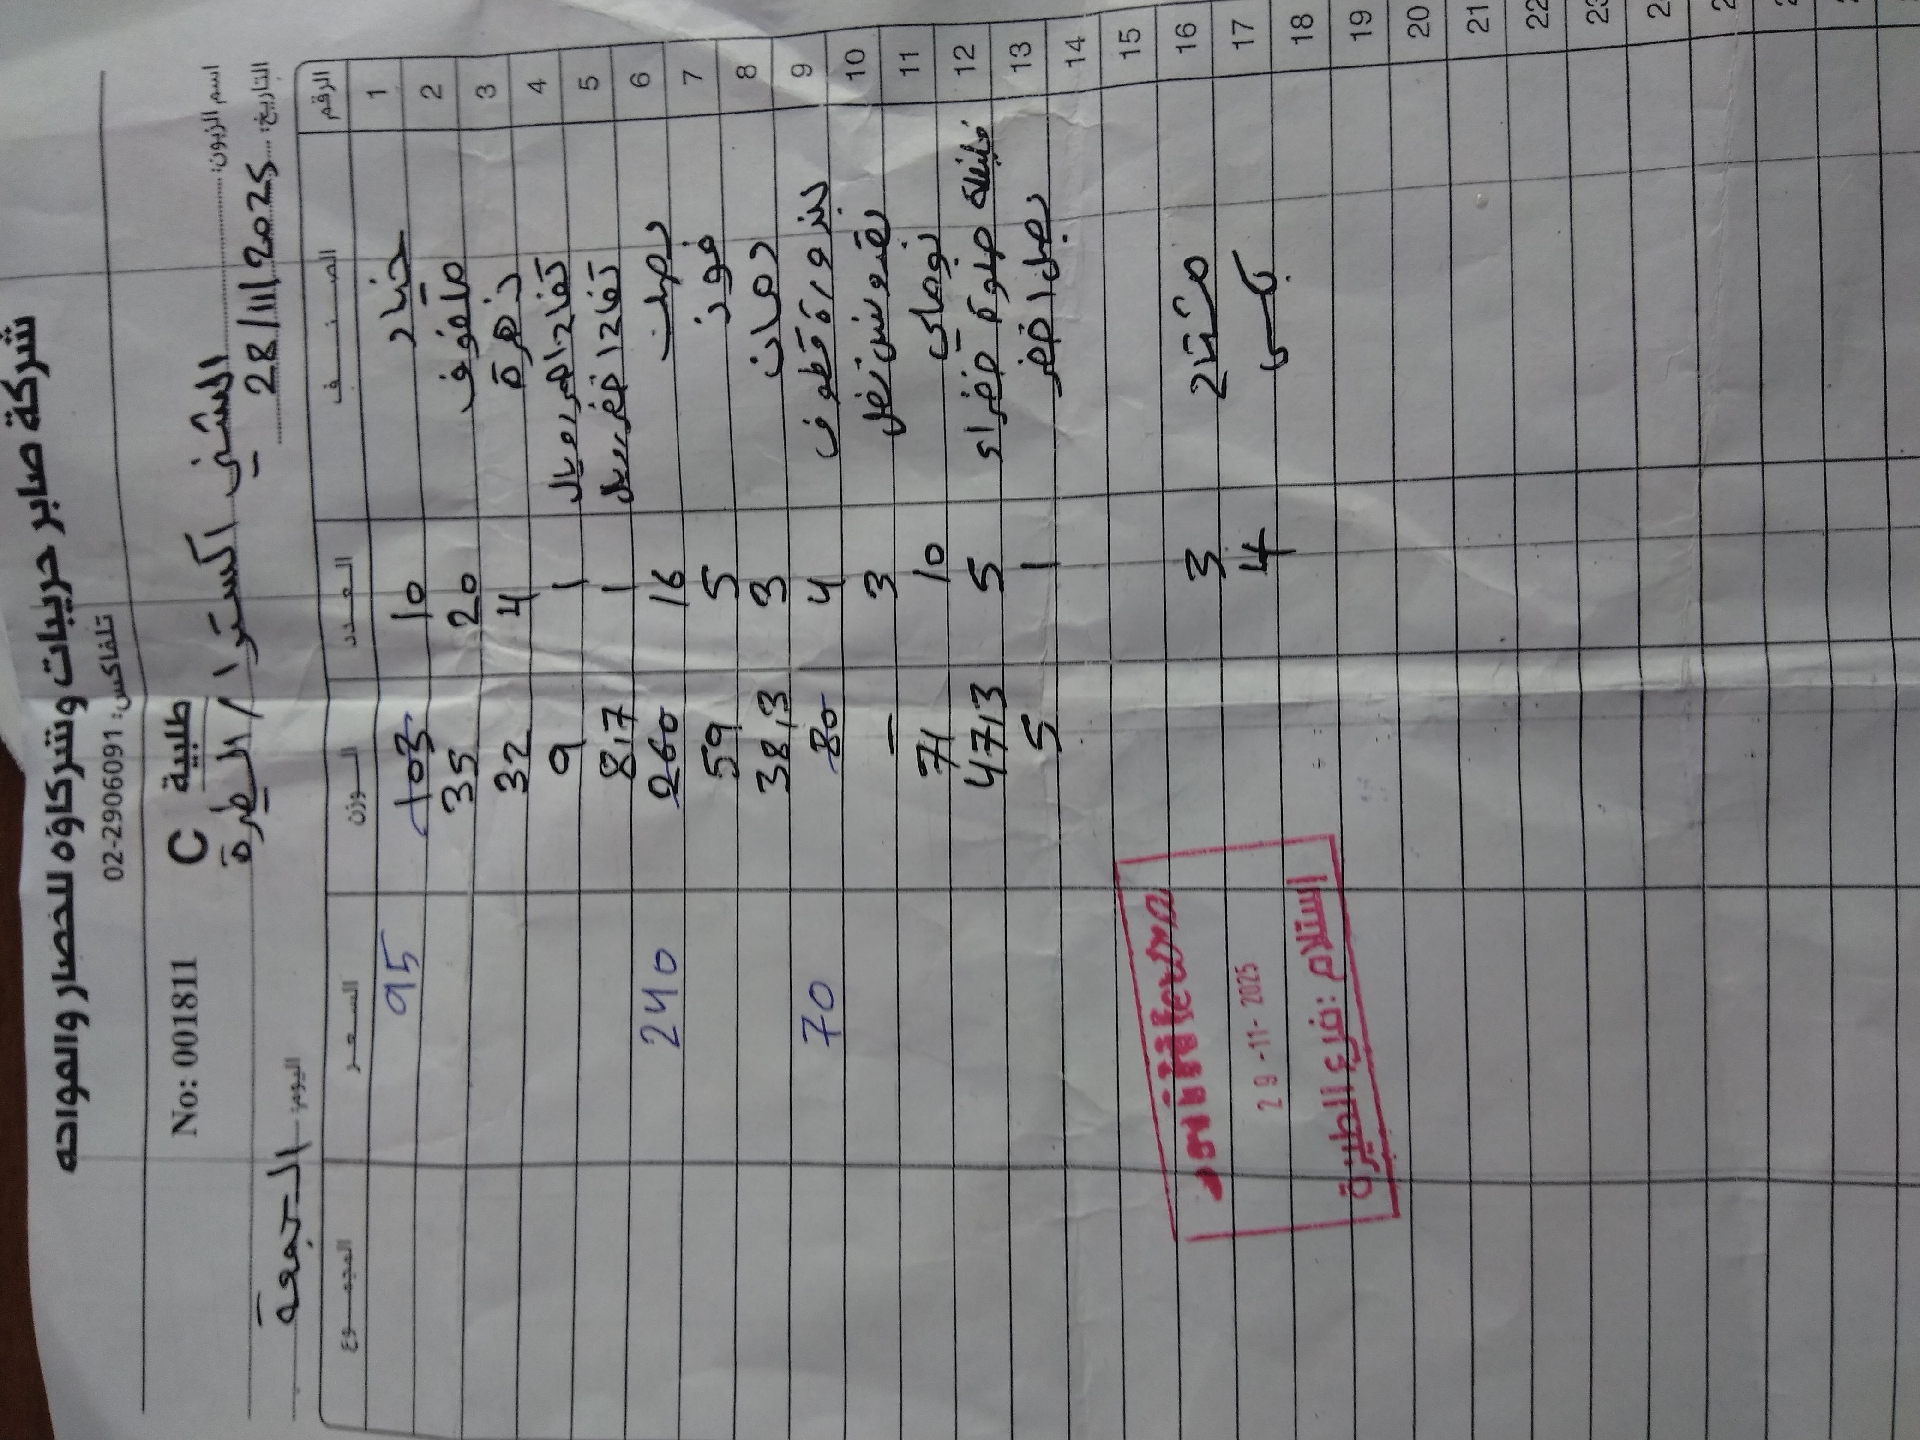 شركة صابر حريبات وشركاؤه للخضار والفواكه
تلفاكس: 02-2906091
No: 001811 C طلبية
اسم الزبون: الشني اكسترا / الطيرة
التاريخ: 28/11/2025 اليوم: الجمعة
الرقم الصنف العدد الوزن السعر المجموع
1 خيار 10 103 95
2 ملفوف 20 35
3 زهرة 4 32
4 تفاح احمر رويال 1 9
5 تفاح اخضر 1 8,7
6 16 260 240
7 موز 5 59
8 رمان 3 38,3
9 بندورة قطوف 4 80 70
10 بقدونس نخل 3 -
11 بوملي 10 71
12 فليفلة حلوة خضراء 5 47,3
13 بصل اخضر 1 5
14
15
16 مشتاح 3
17 بكس 4
18
19
20
21
22
23
29-11-2025
استلام: فرع الطيرة